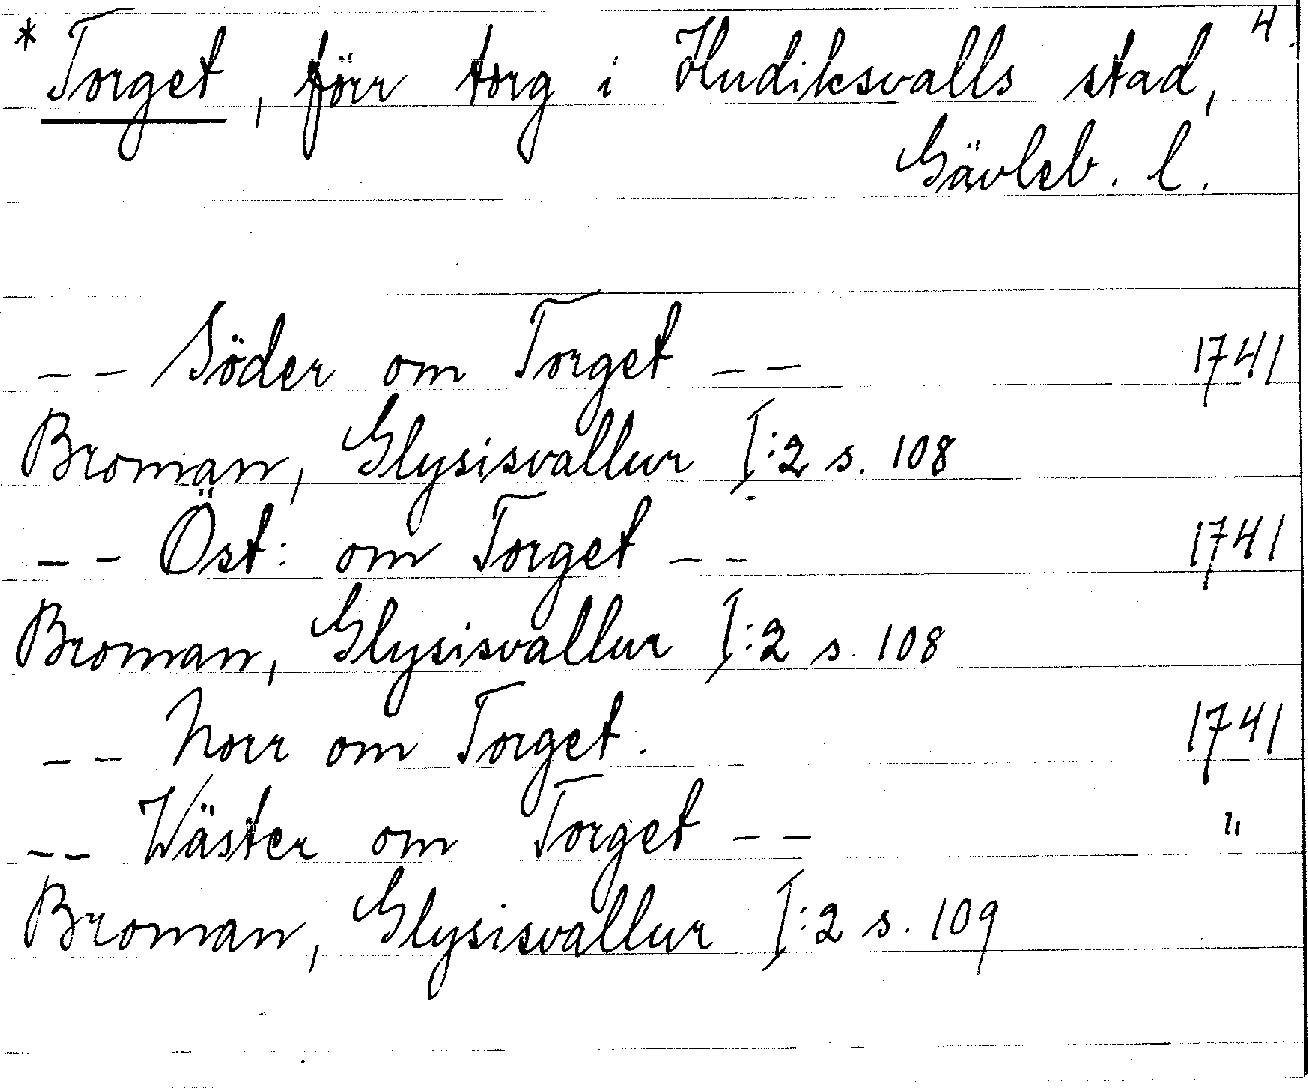 * Torget, förr torg i Hudiksvalls stad, H.
Gävleb. l.
-- Söder om Torget -- 1741
Broman, Glysisvallur I:2 s. 108
-- Öst: om Torget -- 1741
Broman, Glysisvallur I:2 s. 108
-- Norr om Torget. 1741
-- Wäster om Torget -- "
Broman, Glysisvallur I:2 s. 109